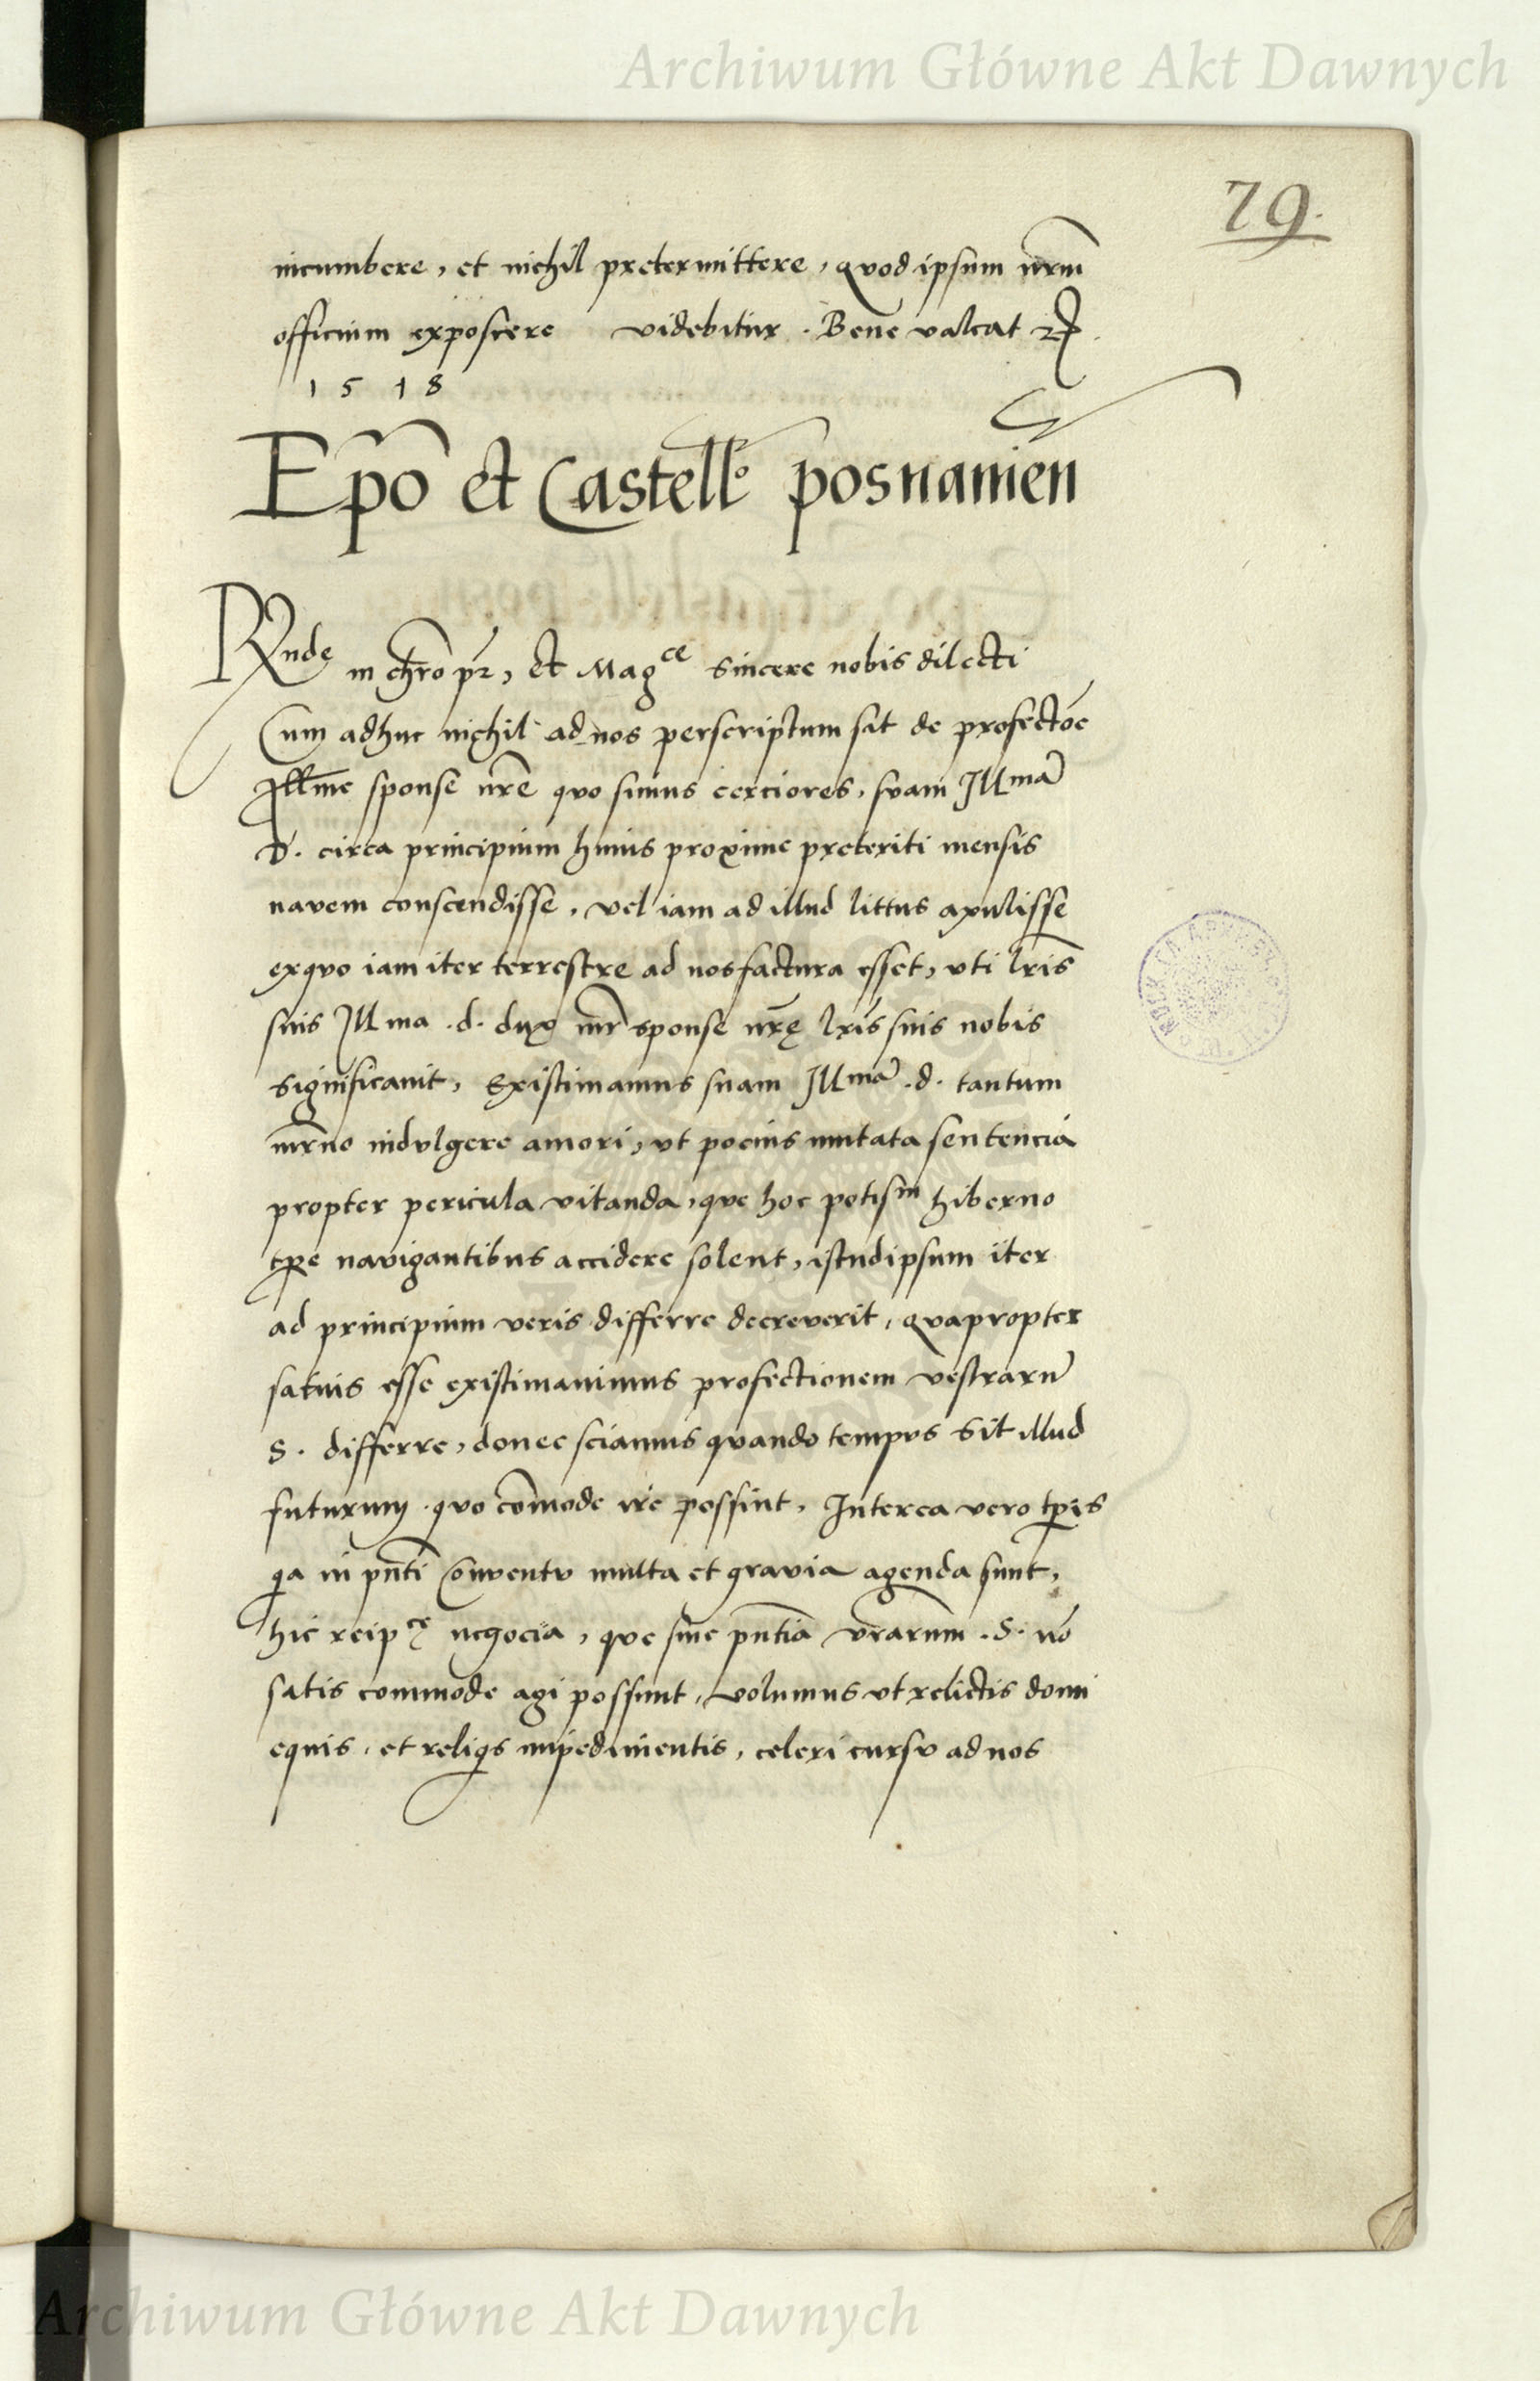 Archiwum Główne Akt Dawnych
79.
incumbere, et nichil pretermittere, quod ipsum nrm̄
officium exposcere videbitur. Bene valeat
1518
Epō et Castellº posnanień
Rnde in chrō pr̄, et Magce sincere nobis dilecti
Cum adhuc nichil ad nos perscriptum sit de profectōe
Illme sponse nrē quo simus cerciores, suam Illmā
D. circa principium huius proxime preteriti mensis
navem conscendisse, vel iam ad illud littus apulisse
exquo iam iter terrestre ad nos factura esset, vti lrīs
suis Illma .d. dux mr̄ sponse nrę̄ lrīs suis nobis
significauit, Existimamus suam Illmā .d. tantum
mr̄no indulgere amori, vt pocius mutata sentencia
propter pericula vitanda, que hoc potissm hiberno
tp̄e navigantibus accidere solent, istud ipsum iter
ad principium veris differre decreverit, quapropter
satius esse existimauimus profectionem vestrarū
S. differre, donec sciamus quando tempus sit illud
futurum quo cōmode ire possint, Interea vero tp̄is
qa in pn̄ti Conventu multa et gravia agenda sunt,
hic reipcę negocia, que sine pn̄tia vr̄arum .S. nō
satis commode agi possunt, volumus vt relictis domi
equis, et reliqs impedimentis, celeri cursu ad nos
Archiwum Główne Akt Dawnych